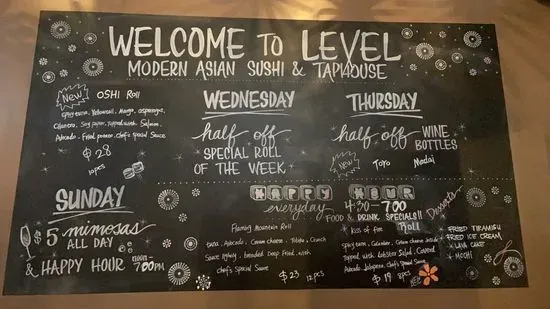 WELCOME TO LEVEL
MODERN ASIAN SUSHI & TAPHOUSE
New OSHI Roll
spicy tuna, Yellowtail, Mango, asparagus,
Cilantro, Soy paper, topped with Salmon,
Avocado, Fried potato, chef's special Sauce
$28
10pcs
WEDNESDAY
half off
SPECIAL ROLL
OF THE WEEK
THURSDAY
half off WINE
BOTTLES
New Toro Madai
SUNDAY
$5 mimosas
ALL DAY
& HAPPY HOUR
7:00PM
HAPPY HOUR
everyday 4:30-7:00
FOOD & DRINK SPECIALS!!
Flaming Mountain Roll
tuna, Avocado, Cream cheese, Potato, Crunch
Sauce lightly, breaded Deep Fried with
chef's Special Sauce
$23 12pcs
Kiss of fire Roll
spicy tuna, Cucumber, Cream cheese inside
Topped with lobster Salad, Covered
Avocado, Jalapeno, Chef's Special Sauce
$19 8pcs
Desserts
FRIED TIRAMISU
FRIED ICE CREAM
LAVA CAKE
MOCHI